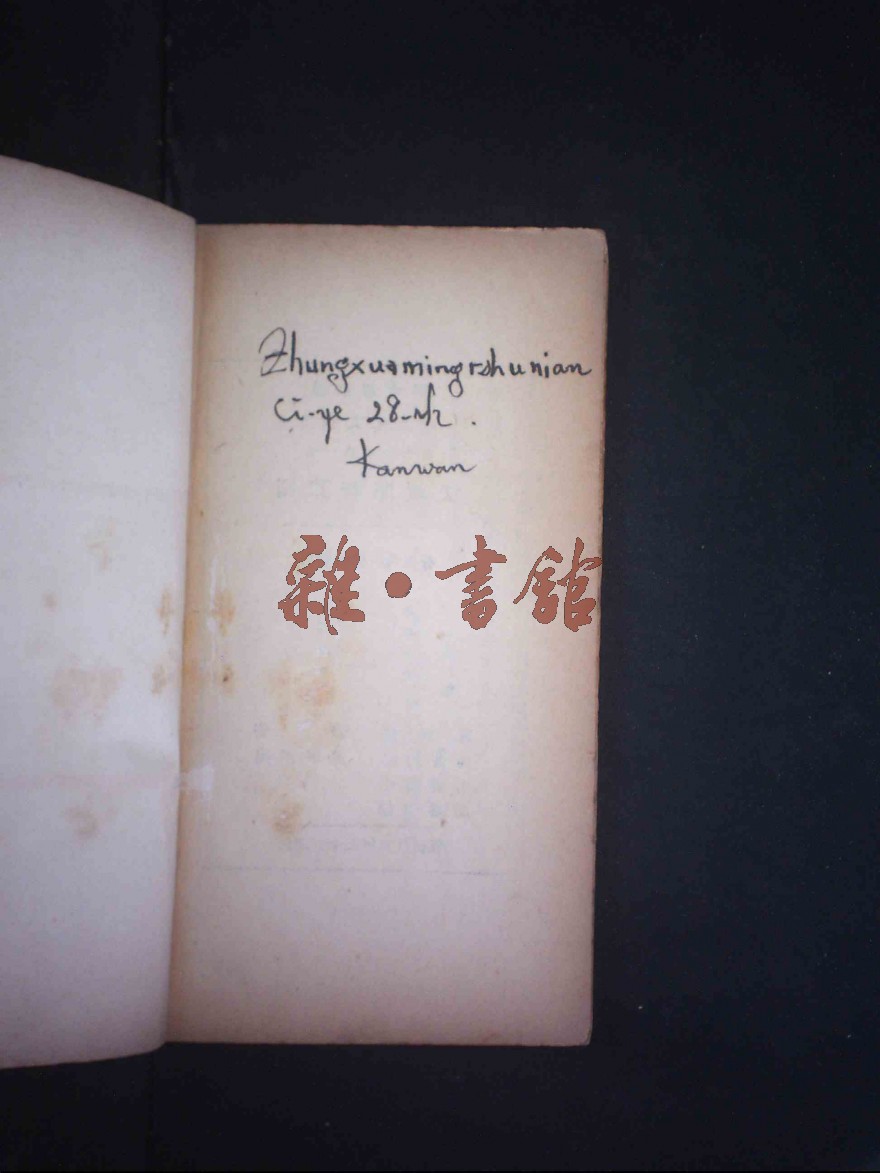 Zhungxuamingrshunian
Ci-ye 28-rh.
Kanwan
雜·書館